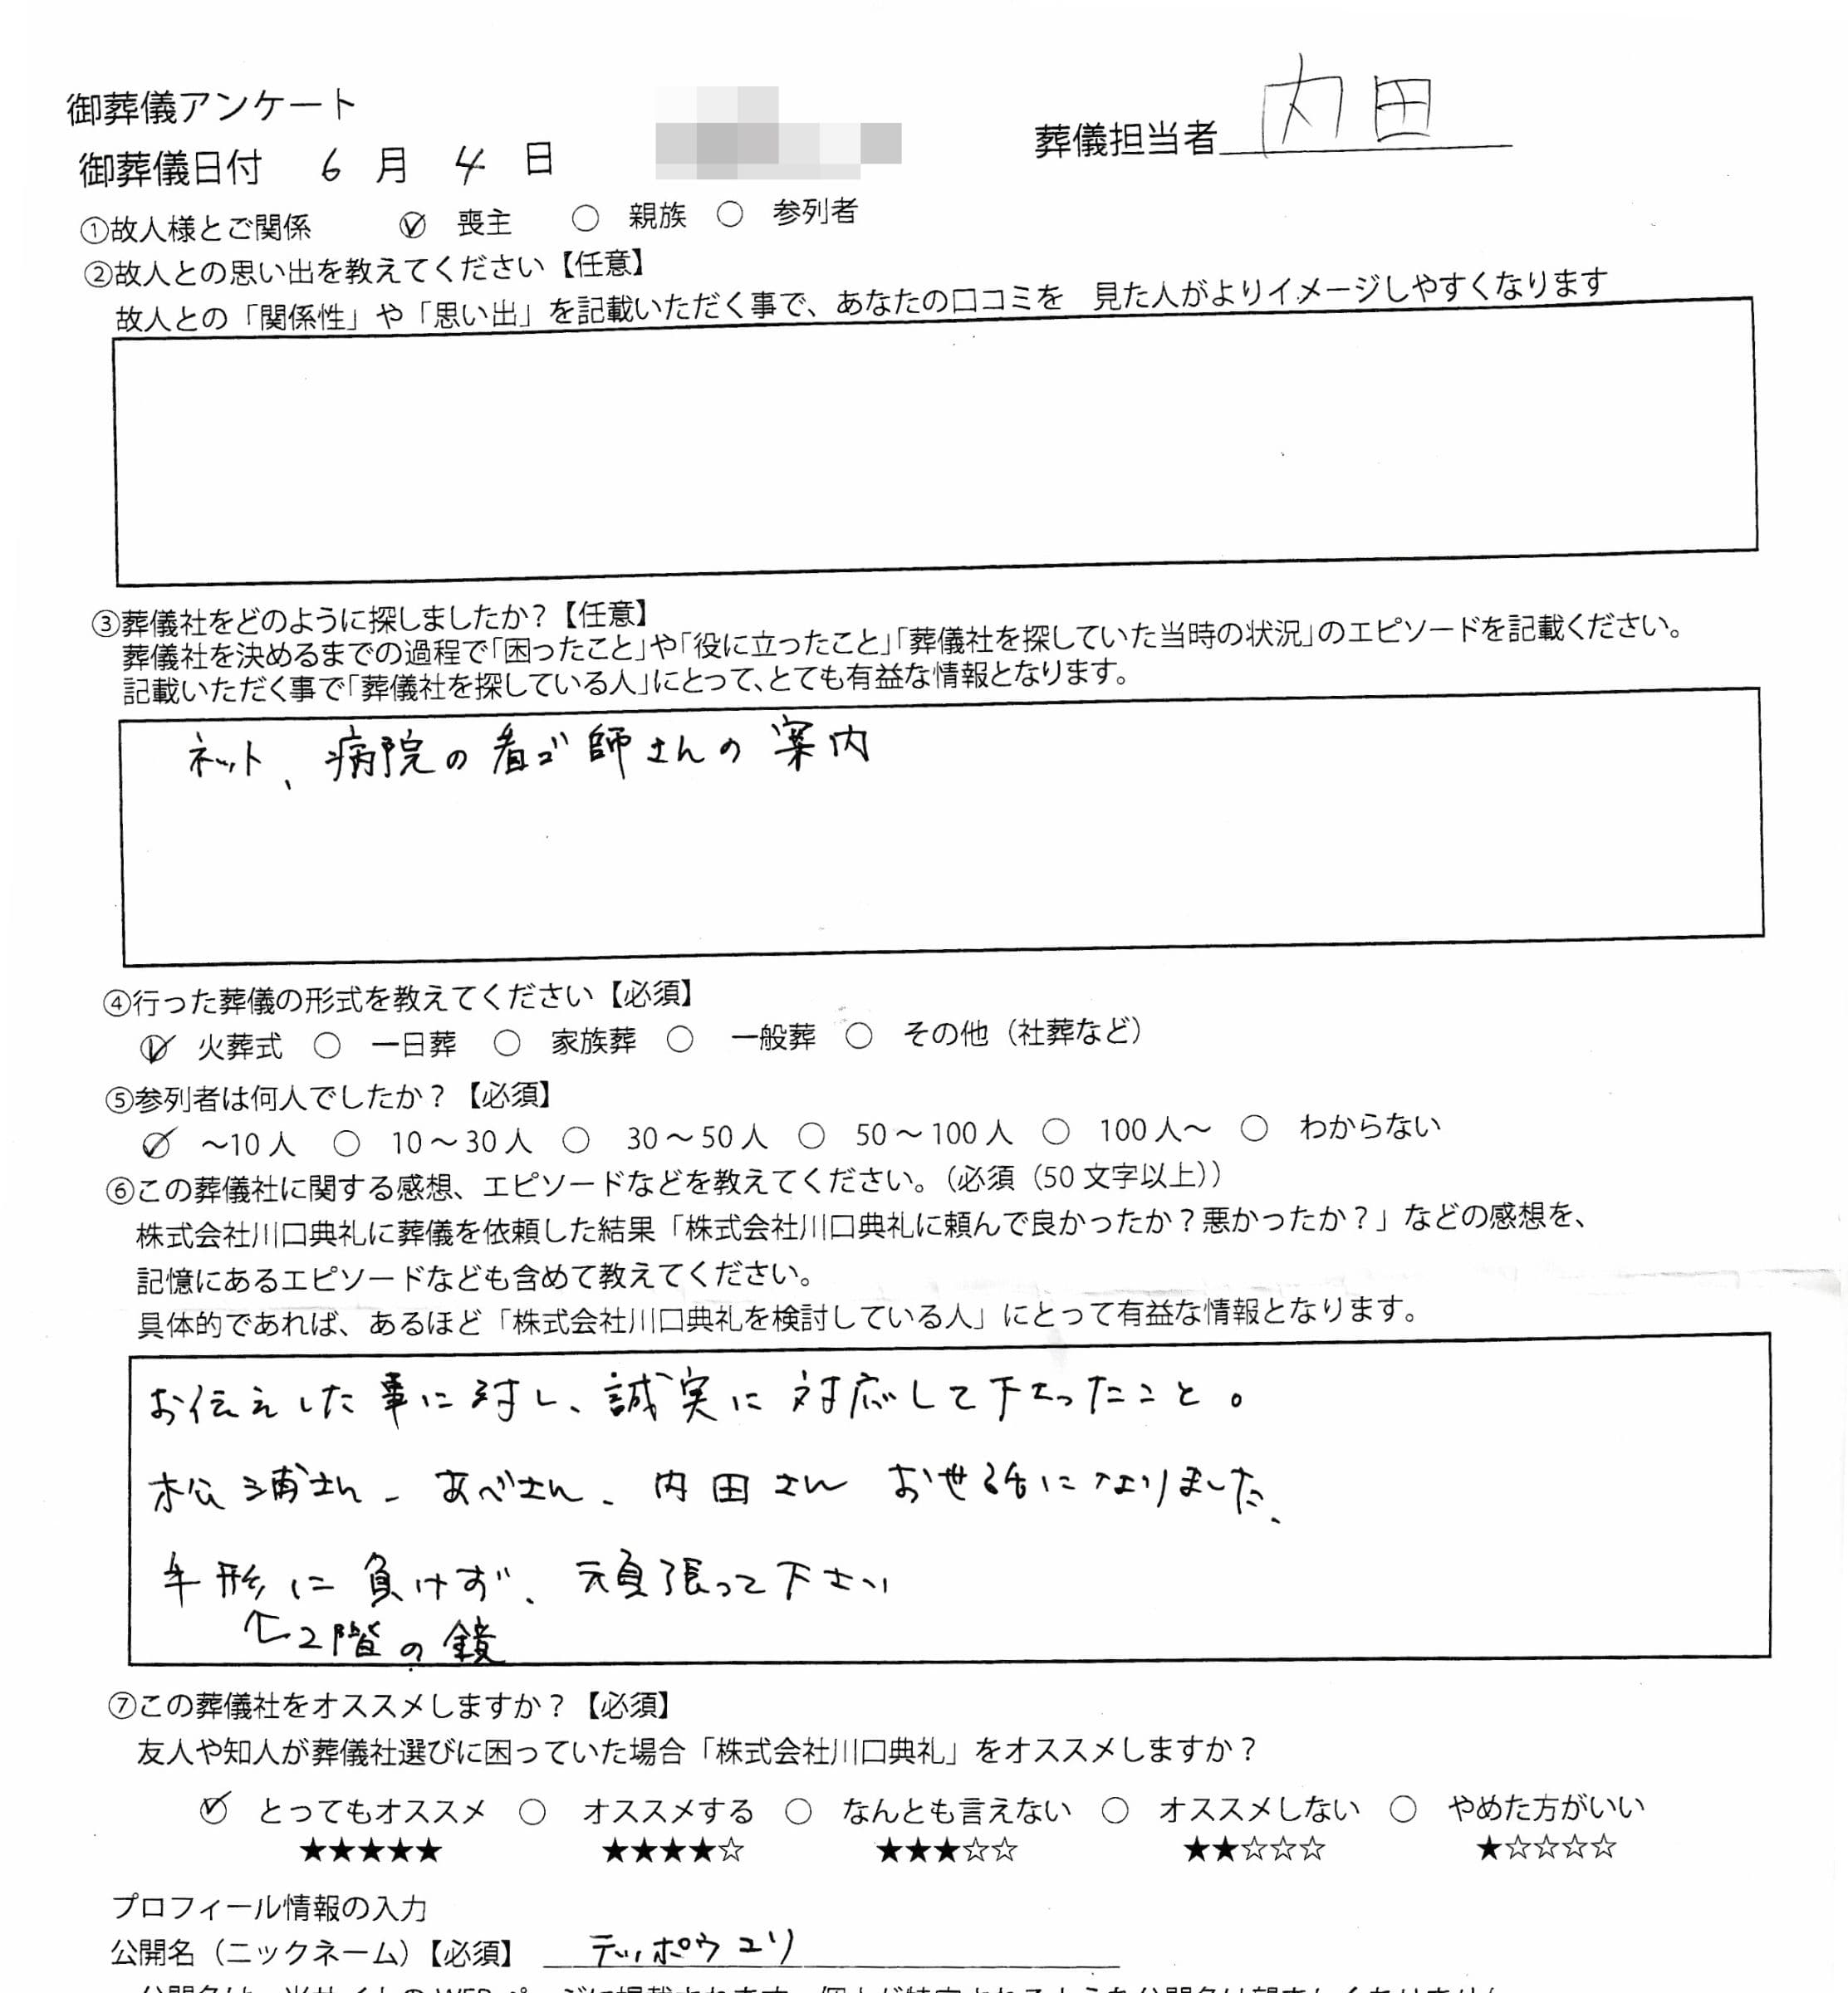 御葬儀アンケート
葬儀担当者 内田
御葬儀日付 6 月 4 日
①故人様とご関係 喪主 ○ 親族 ○ 参列者
②故人との思い出を教えてください【任意】
故人との「関係性」や「思い出」を記載いただく事で、あなたの口コミを 見た人がよりイメージしやすくなります
③葬儀社をどのように探しましたか?【任意】
葬儀社を決めるまでの過程で「困ったこと」や「役に立ったこと」「葬儀社を探していた当時の状況」のエピソードを記載ください。
記載いただく事で「葬儀社を探している人」にとって、とても有益な情報となります。
ネット、病院の看ゴ師さんの案内
④行った葬儀の形式を教えてください【必須】
火葬式 ○ 一日葬 ○ 家族葬 ○ 一般葬 ○ その他（社葬など）
⑤参列者は何人でしたか?【必須】
～10人 ○ 10～30人 ○ 30～50人 ○ 50～100人 ○ 100人～ ○ わからない
⑥この葬儀社に関する感想、エピソードなどを教えてください。（必須（50文字以上））
株式会社川口典礼に葬儀を依頼した結果「株式会社川口典礼に頼んで良かったか?悪かったか?」などの感想を、
記憶にあるエピソードなども含めて教えてください。
具体的であれば、あるほど「株式会社川口典礼を検討している人」にとって有益な情報となります。
お伝えした事に対し、誠実に対応して下さったこと。
松浦さん、あべさん、内田さん お世話になりました。
手形に負けず、頑張って下さい
↑2階の鏡
⑦この葬儀社をオススメしますか?【必須】
友人や知人が葬儀社選びに困っていた場合「株式会社川口典礼」をオススメしますか?
とってもオススメ ○ オススメする ○ なんとも言えない ○ オススメしない ○ やめた方がいい
★★★★★ ★★★★☆ ★★★☆☆ ★★☆☆☆ ★☆☆☆☆
プロフィール情報の入力
公開名（ニックネーム）【必須】 テッポウユリ